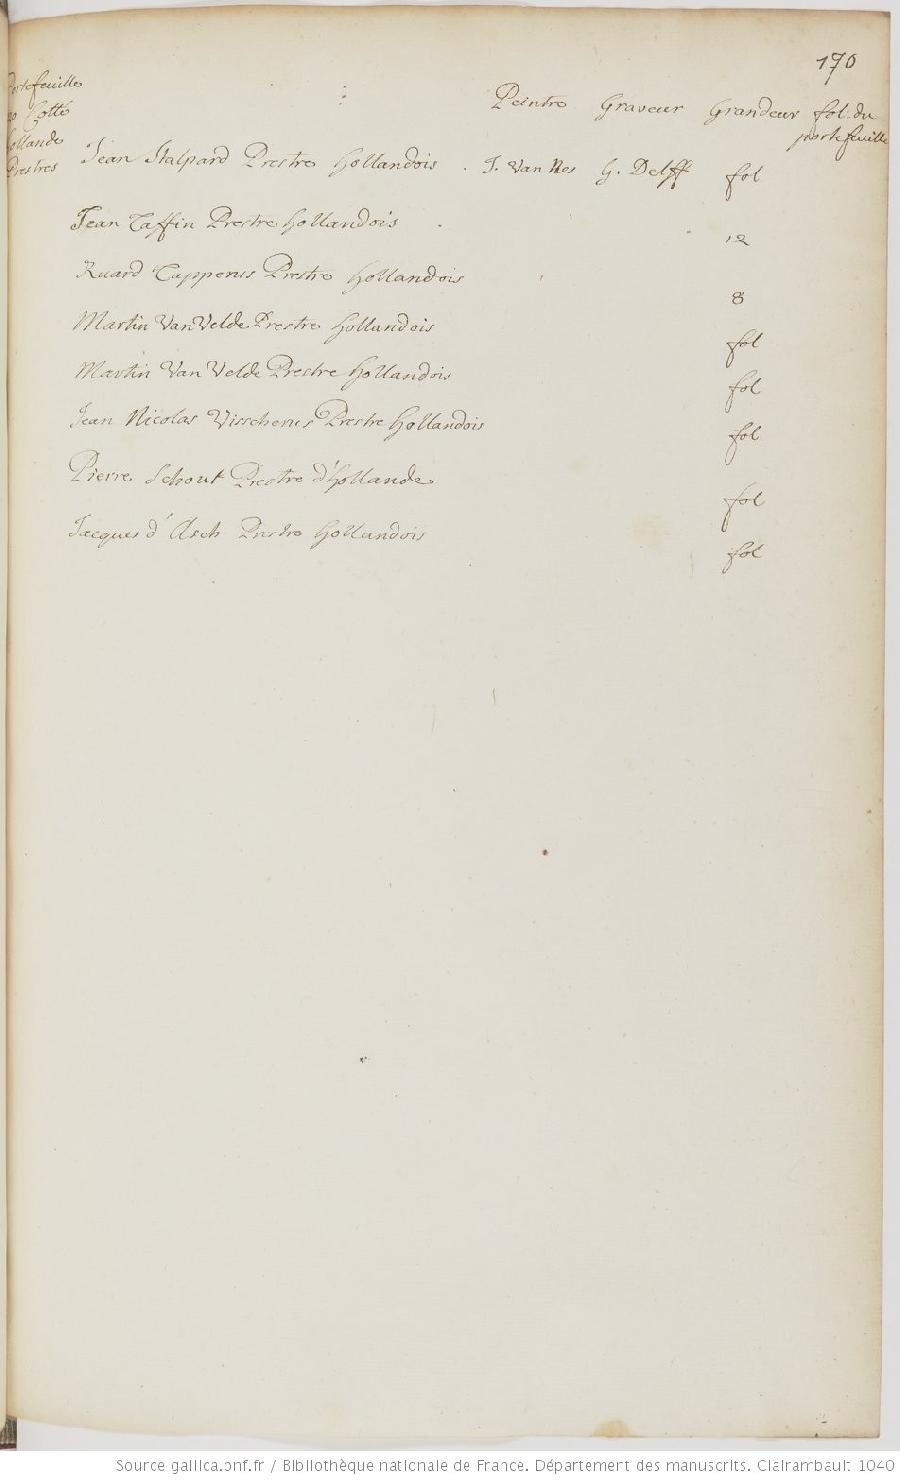 170
Portefeuille
no Cotté
hollande
Prestres
Peintre Graveur Grandeur fol. du
portefeuille
Jean Stalpard Prestre hollandois . J. Van Nes G. Delff fol
Jean Taffin Prestre hollandois 12
Ruard Tapperus Prestre hollandois 8
Martin Van Velde Prestre hollandois fol
Martin Van Velde Prestre hollandois fol
Jean Nicolas Visscherus Prestre hollandois fol
Pierre Schout Prestre d'hollande fol
Jacques d'Asch Prestre hollandois fol
Source gallica.bnf.fr / Bibliothèque nationale de France. Département des manuscrits. Clairambault 1040